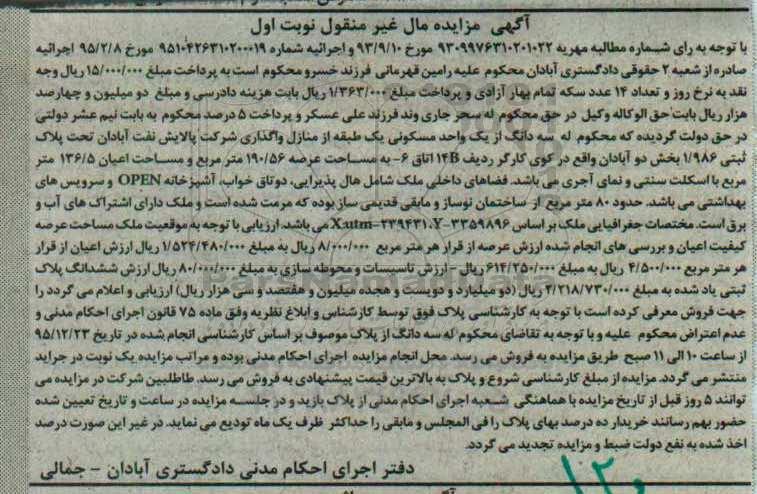 آگهی مزایده مال غیر منقول نوبت اول
با توجه به رای شماره مطالبه مهریه ۹۳۰۹۹۷۶۳۱۰۲۰۱۰۲۲ مورخ ۹۳/۹/۱۰ و اجرائیه شماره ۹۵۱۰۴۲۶۳۱۰۲۰۰۰۱۹ مورخ ۹۵/۲/۸ اجرائیه
صادره از شعبه ۲ حقوقی دادگستری آبادان محکوم علیه رامین قهرمانی فرزند خسرو محکوم است به پرداخت مبلغ ۱۵/۰۰۰/۰۰۰ ریال وجه
نقد به نرخ روز و تعداد ۱۴ عدد سکه تمام بهار آزادی و پرداخت مبلغ ۱/۳۶۳/۰۰۰ ریال بابت هزینه دادرسی و مبلغ دو میلیون و چهارصد
هزار ریال بابت حق الوکاله وکیل در حق محکوم له سحر جاری وند فرزند علی عسکر و پرداخت ۵ درصد محکوم به بابت نیم عشر دولتی
در حق دولت گردیده که محکوم له سه دانگ از یک واحد مسکونی یک طبقه از منازل واگذاری شرکت پالایش نفت آبادان تحت پلاک
ثبتی ۱/۹۸۶ بخش دو آبادان واقع در کوی کارگر ردیف ۱۴B اتاق ۶- به مساحت عرصه ۱۹۰/۵۶ متر مربع و مساحت اعیان ۱۳۶/۵ متر
مربع با اسکلت سنتی و نمای آجری می باشد. فضاهای داخلی ملک شامل هال پذیرایی، دوتاق خواب، آشپزخانه OPEN و سرویس های
بهداشتی می باشد. حدود ۸۰ متر مربع از ساختمان نوساز و مابقی قدیمی ساز بوده که مرمت شده است و ملک دارای اشتراک های آب و
برق است. مختصات جغرافیایی ملک بر اساس X:utm-۲۳۹۴۳۱،Y-۳۳۵۹۸۹۶ می باشد. ارزیابی با توجه به موقعیت ملک مساحت عرصه
کیفیت اعیان و بررسی های انجام شده ارزش عرصه از قرار هر متر مربع ۸/۰۰۰/۰۰۰ ریال به مبلغ ۱/۵۲۴/۴۸۰/۰۰۰ ریال ارزش اعیان از قرار
هر متر مربع ۴/۵۰۰/۰۰۰ ریال به مبلغ ۶۱۴/۲۵۰/۰۰۰ ریال – ارزش تاسیسات و محوطه سازی به مبلغ ۸۰/۰۰۰/۰۰۰ ریال ارزش ششدانگ پلاک
ثبتی یاد شده به مبلغ ۲/۲۱۸/۷۳۰/۰۰۰ ریال (دو میلیارد و دویست و هجده میلیون و هفتصد و سی هزار ریال) ارزیابی و اعلام می گردد را
جهت فروش معرفی کرده است با توجه به کارشناسی پلاک فوق توسط کارشناس و ابلاغ نظریه وفق ماده ۷۵ قانون اجرای احکام مدنی و
عدم اعتراض محکوم علیه و با توجه به تقاضای محکوم له سه دانگ از پلاک موصوف بر اساس کارشناسی انجام شده در تاریخ ۹۵/۱۲/۲۳
از ساعت ۱۰ الی ۱۱ صبح طریق مزایده به فروش می رسد. محل انجام مزایده اجرای احکام مدنی بوده و مراتب مزایده یک نوبت در جراید
منتشر می گردد. مزایده از مبلغ کارشناسی شروع و پلاک به بالاترین قیمت پیشنهادی به فروش می رسد. طاطلبین شرکت در مزایده می
توانند ۵ روز قبل از تاریخ مزایده با هماهنگی شعبه اجرای احکام مدنی از پلاک بازید و در جلسه مزایده در ساعت و تاریخ تعیین شده
حضور بهم رسانند خریدار ده درصد بهای پلاک را فی المجلس و مابقی را حداکثر ظرف یک ماه تودیع می نماید. در غیر این صورت درصد
اخذ شده به نفع دولت ضبط و مزایده تجدید می گردد.
دفتر اجرای احکام مدنی دادگستری آبادان – جمالی
۱۲۰